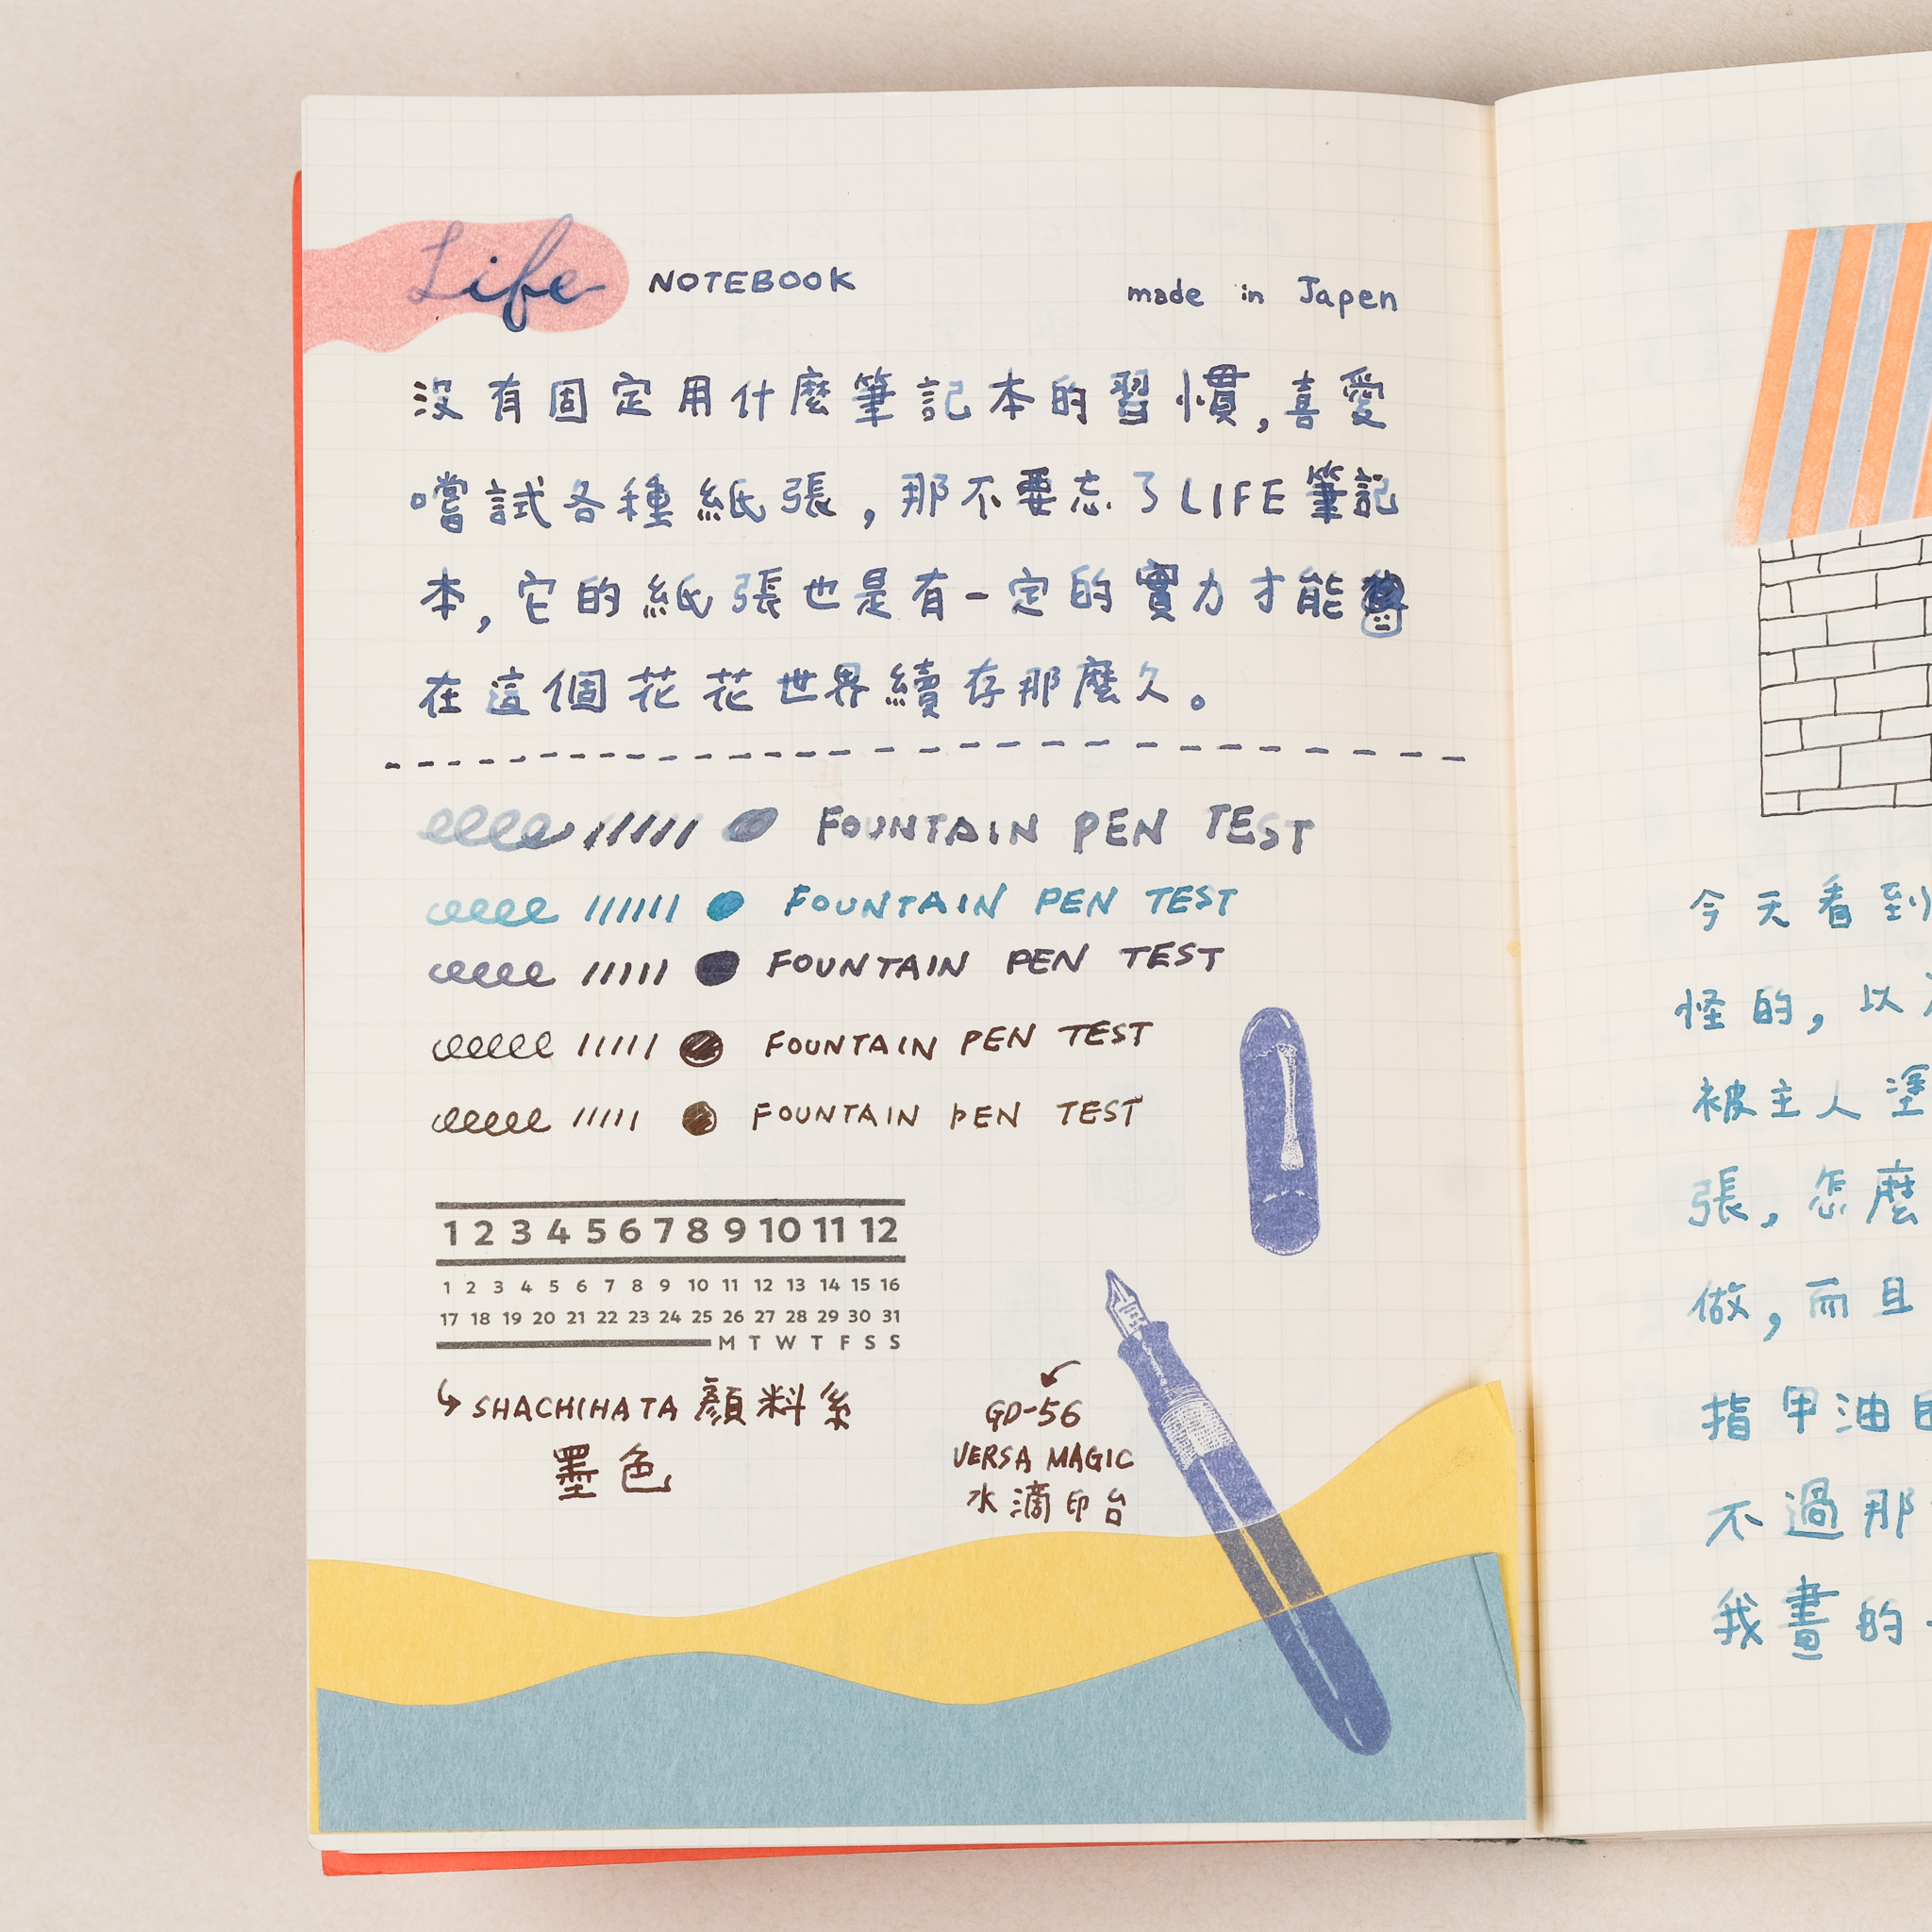 Life NOTEBOOK made in Japen
沒有固定用什麼筆記本的習慣,喜愛
嚐試各種紙張,那不要忘了LIFE筆記
本,它的紙張也是有一定的實力才能
在這個花花世界續存那麼久。
FOUNTAIN PEN TEST
FOUNTAIN PEN TEST
FOUNTAIN PEN TEST
FOUNTAIN PEN TEST
FOUNTAIN PEN TEST
1 2 3 4 5 6 7 8 9 10 11 12
1 2 3 4 5 6 7 8 9 10 11 12 13 14 15 16
17 18 19 20 21 22 23 24 25 26 27 28 29 30 31
M T W T F S S
SHACHIHATA 顏料系
墨色
GD-56
VERSA MAGIC
水滴印台
今天看到
怪的,以
被主人塗
張,怎麼
做,而且
指甲油
不過那
我畫的